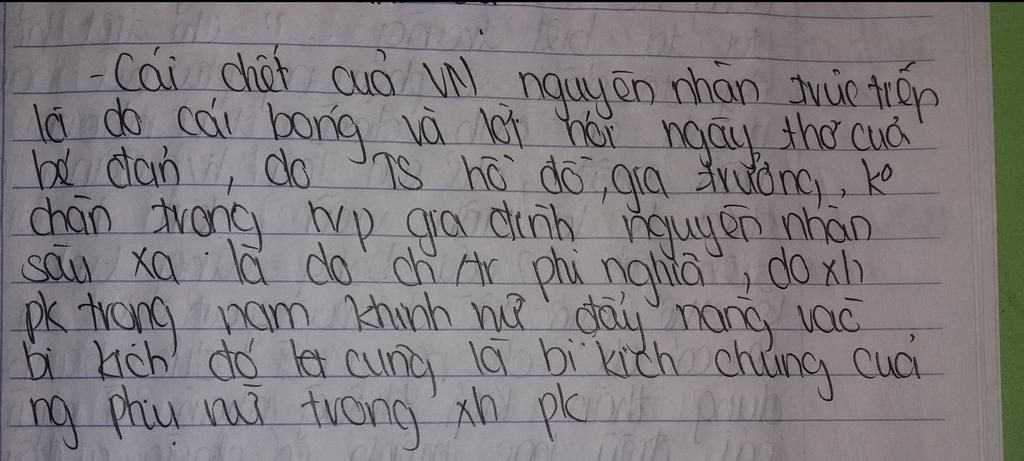 - Cái chết của VN nguyên nhân trực tiếp
là do cái bóng và lời nói ngây thơ của
bé đan, do TS hồ đồ, gia trưởng, ko
chân trong hp gia đình nguyên nhân
sâu xa là do ch tr phi nghĩa, do xh
pk trong nam khinh nữ đẩy nàng vào
bi kịch đó cũng là bi kịch chung của
ng phụ nữ trong xh pk